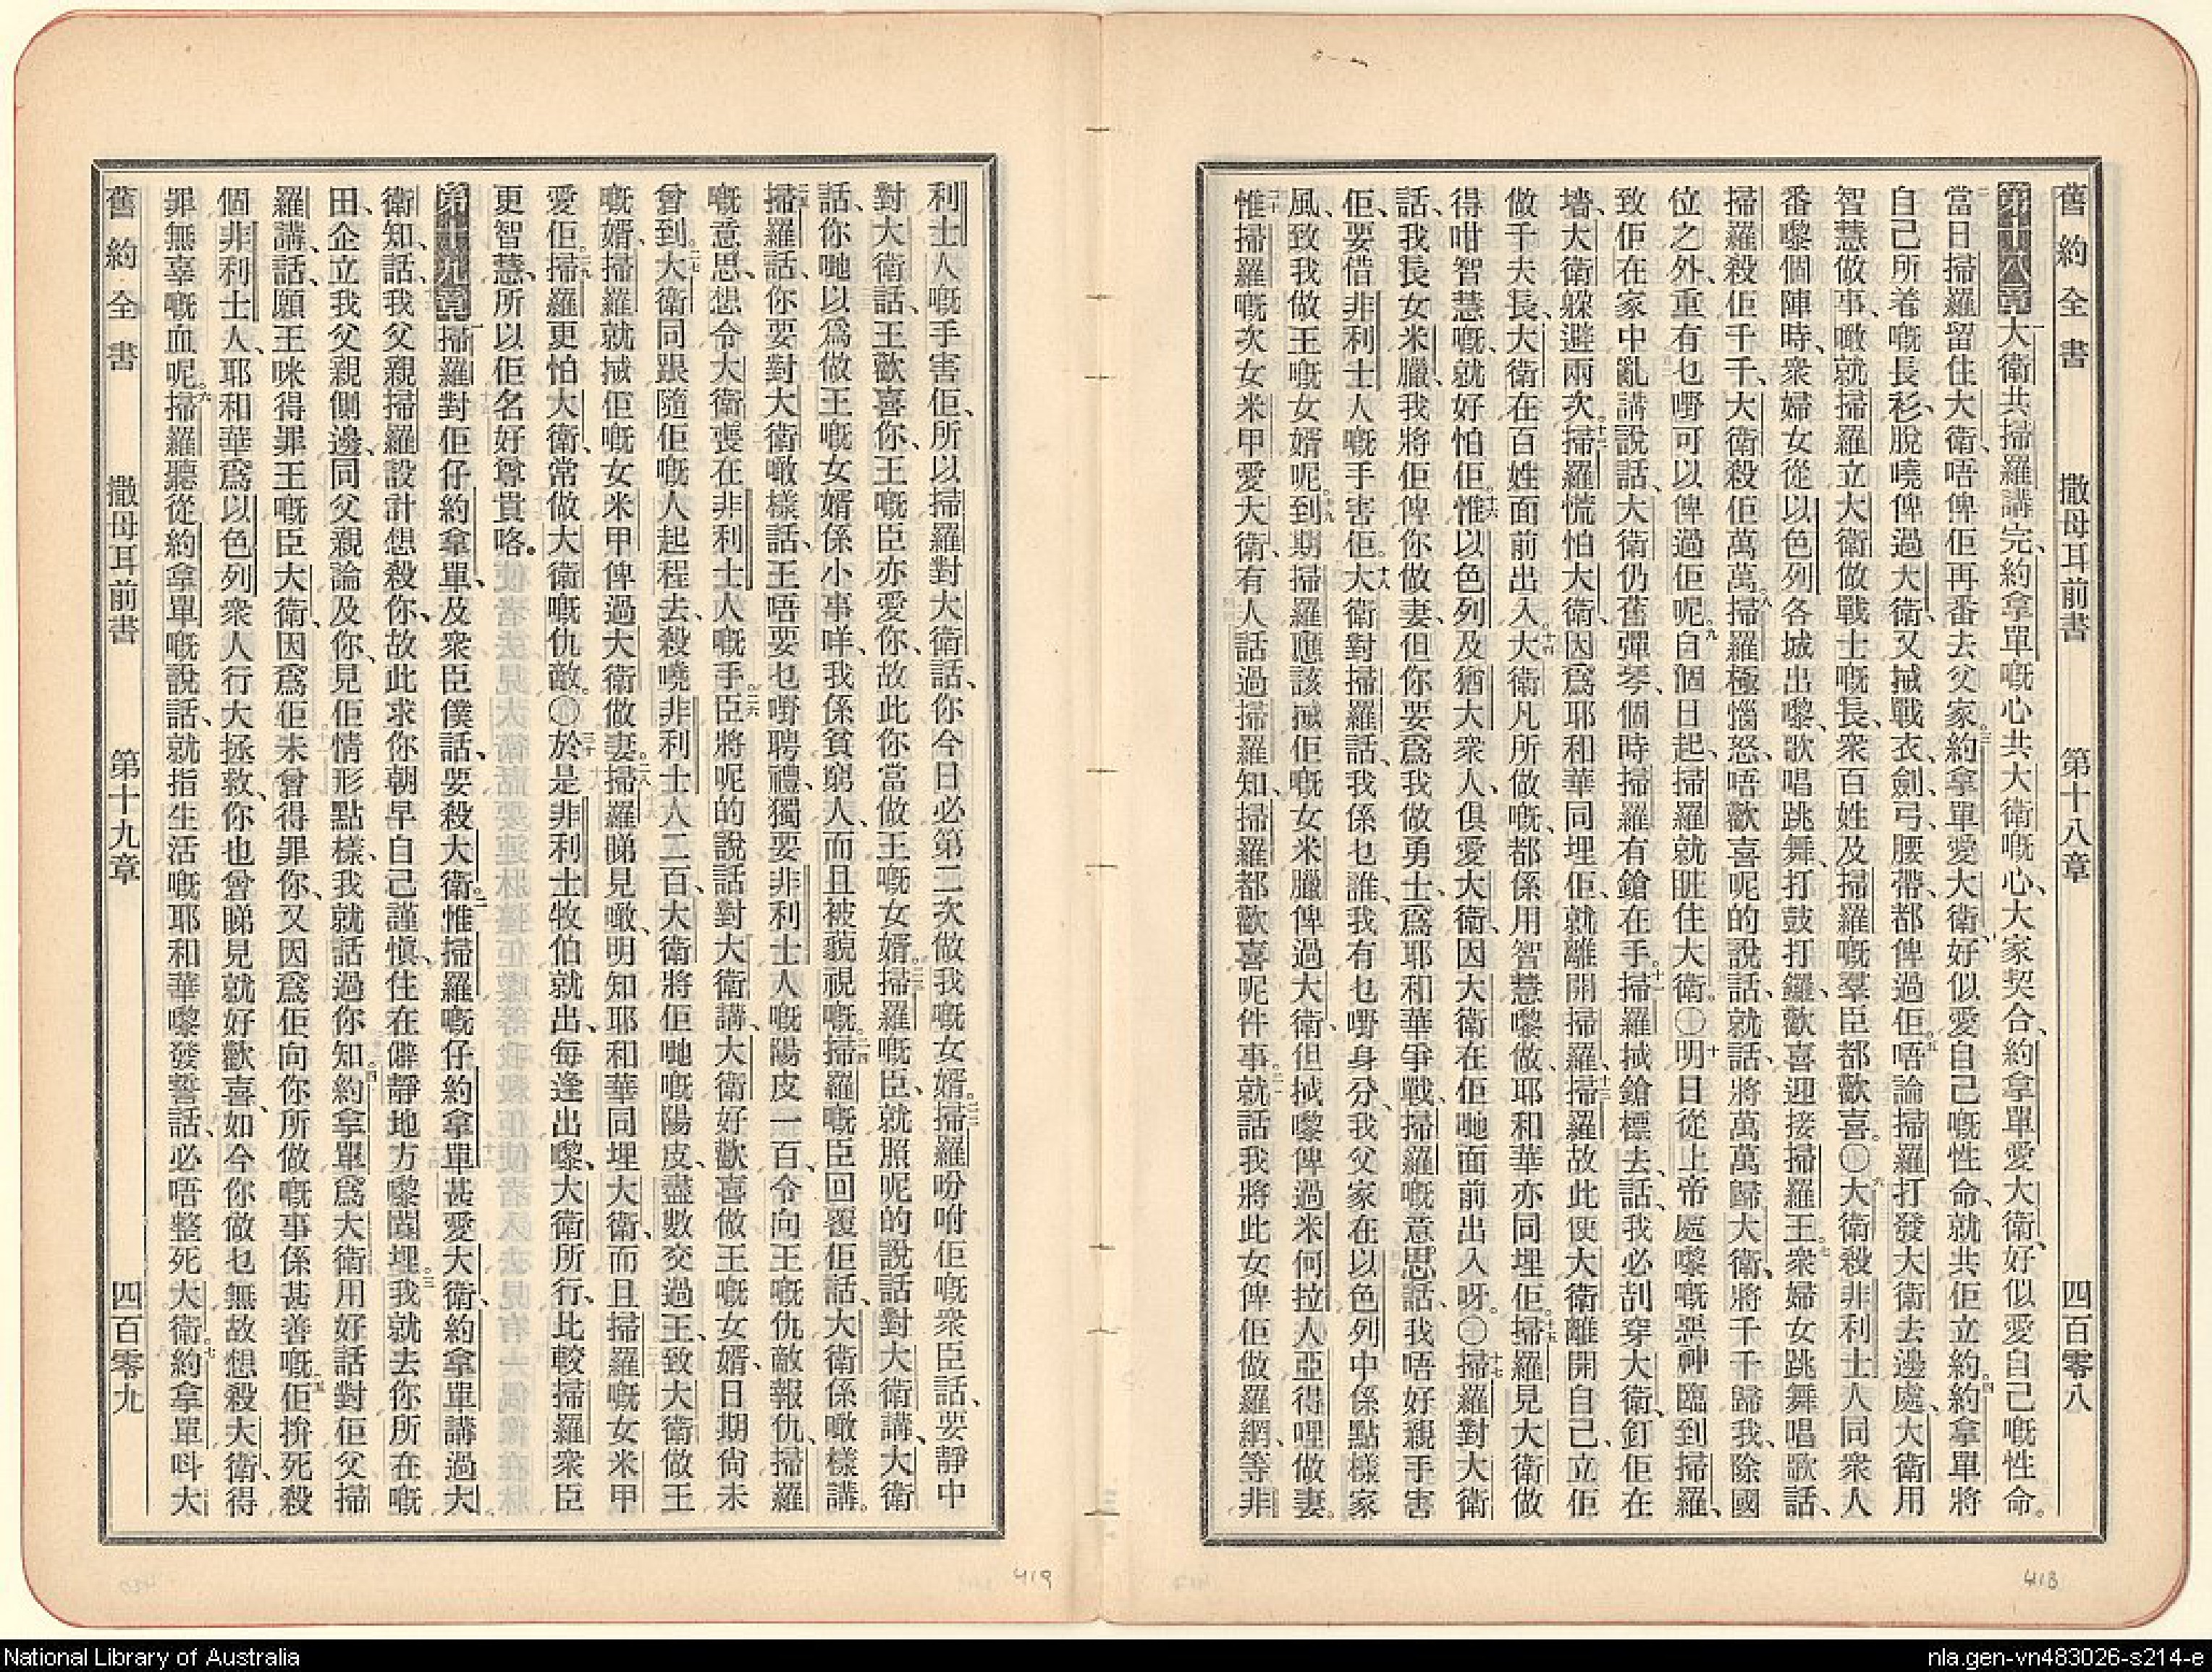 舊約全書 撒母耳前書 第十八章 四百零八
第十八章 一大衛共掃羅講完、約拿單嘅心共大衛嘅心、大家契合、約拿單愛大衛、好似愛自己嘅性命。
二當日掃羅留住大衛、唔俾佢再番去父家。三約拿單愛大衛、好似愛自己嘅性命、就共佢立約。四約拿單將
自己所着嘅長衫、脫嘵俾過大衛、又搣戰衣、劍、弓、腰帶、都俾過佢。五唔論掃羅打發大衛去邊處、大衛用
智慧做事、噉就掃羅立大衛做戰士嘅長、衆百姓及掃羅嘅羣臣都歡喜。〇六大衛殺非利士人同衆人
番嚟個陣時、衆婦女從以色列各城出嚟、歌唱跳舞、打鼓打鑼、歡喜迎接掃羅王。七衆婦女跳舞唱歌話、
掃羅殺佢千千、大衛殺佢萬萬。八掃羅極惱怒、唔歡喜呢的說話、就話、將萬萬歸大衛、將千千歸我、除國
位之外、重有乜嘢可以俾過佢呢。九自個日起、掃羅就眦住大衛。〇十明日從上帝處嚟嘅惡神臨到掃羅、
致佢在家中亂講說話、大衛仍舊彈琴、個時掃羅有鎗在手。十一掃羅搣鎗標去、話、我必刮穿大衛、釘佢在
墻、大衛躲避兩次。十二掃羅慌怕大衛、因爲耶和華同埋佢、就離開掃羅。十三掃羅故此使大衛離開自己、立佢
做千夫長、大衛在百姓面前出入。十四大衛凡所做嘅、都係用智慧嚟做、耶和華亦同埋佢。十五掃羅見大衛做
得咁智慧嘅、就好怕佢。十六惟以色列及猶大衆人、俱愛大衛、因大衛在佢哋面前出入呀。〇十七掃羅對大衛
話、我長女米臘、我將佢俾你做妻、但你要爲我做勇士、爲耶和華爭戰、掃羅嘅意思話、我唔好親手害
佢、要借非利士人嘅手害佢。十八大衛對掃羅話、我係乜誰、我有乜嘢身分、我父家在以色列中係點樣家
風、致我做王嘅女婿呢。十九到期掃羅應該搣佢嘅女米臘俾過大衛、但搣嚟俾過米何拉人亞得哩做妻。
二十惟掃羅嘅次女米甲愛大衛、有人話過掃羅知、掃羅都歡喜呢件事。二一就話、我將此女俾佢做羅網、等非
利士人嘅手害佢、所以掃羅對大衛話、你今日必第二次做我嘅女婿。二二掃羅吩咐佢嘅衆臣話、要靜中
對大衛話、王歡喜你、王嘅臣亦愛你、故此你當做王嘅女婿。二三掃羅嘅臣、就照呢的說話對大衛講、大衛
話、你哋以爲做王嘅女婿係小事咩、我係貧窮人、而且被藐視嘅。二四掃羅嘅臣回覆佢話、大衛係噉樣講。
二五掃羅話、你要對大衛噉樣話、王唔要乜嘢聘禮、獨要非利士人嘅陽皮一百、令向王嘅仇敵報仇、掃羅
嘅意思、想令大衛喪在非利士人嘅手。二六臣將呢的說話對大衛講、大衛好歡喜做王嘅女婿、日期尙未
曾到。二七大衛同跟隨佢嘅人起程去、殺嘵非利士人二百、大衛將佢哋嘅陽皮、盡數交過王、致大衛做王
嘅婿、掃羅就搣佢嘅女米甲俾過大衛做妻。二八掃羅睇見噉、明知耶和華同埋大衛、而且掃羅嘅女米甲
愛佢。二九掃羅更怕大衛、常做大衛嘅仇敵。〇三十於是非利士牧伯就出、每逢出嚟、大衛所行、比較掃羅衆臣
更智慧、所以佢名好尊貴咯。
第十九章 一掃羅對佢仔約拿單、及衆臣僕話、要殺大衛。二惟掃羅嘅仔約拿單甚愛大衛、約拿單講過大
衛知、話、我父親掃羅設計想殺你、故此求你朝早自己謹愼、住在僻靜地方嚟閟埋。三我就去你所在嘅
田、企立我父親側邊、同父親論及你、見佢情形點樣、我就話過你知。四約拿單爲大衛用好話對佢父掃
羅講、話、願王咪得罪王嘅臣大衛、因爲佢未曾得罪你、又因爲佢向你所做嘅事係甚善嘅。五佢拚死殺
個非利士人、耶和華爲以色列衆人行大拯救、你也曾睇見就好歡喜、如今你做乜無故想殺大衛、得
罪無辜嘅血呢。六掃羅聽從約拿單嘅說話、就指生活嘅耶和華嚟發誓話、必唔整死大衛。七約拿單呌大
舊約全書 撒母耳前書 第十九章 四百零九
419
418
National Library of Australia
nla.gen-vn483026-s214-e